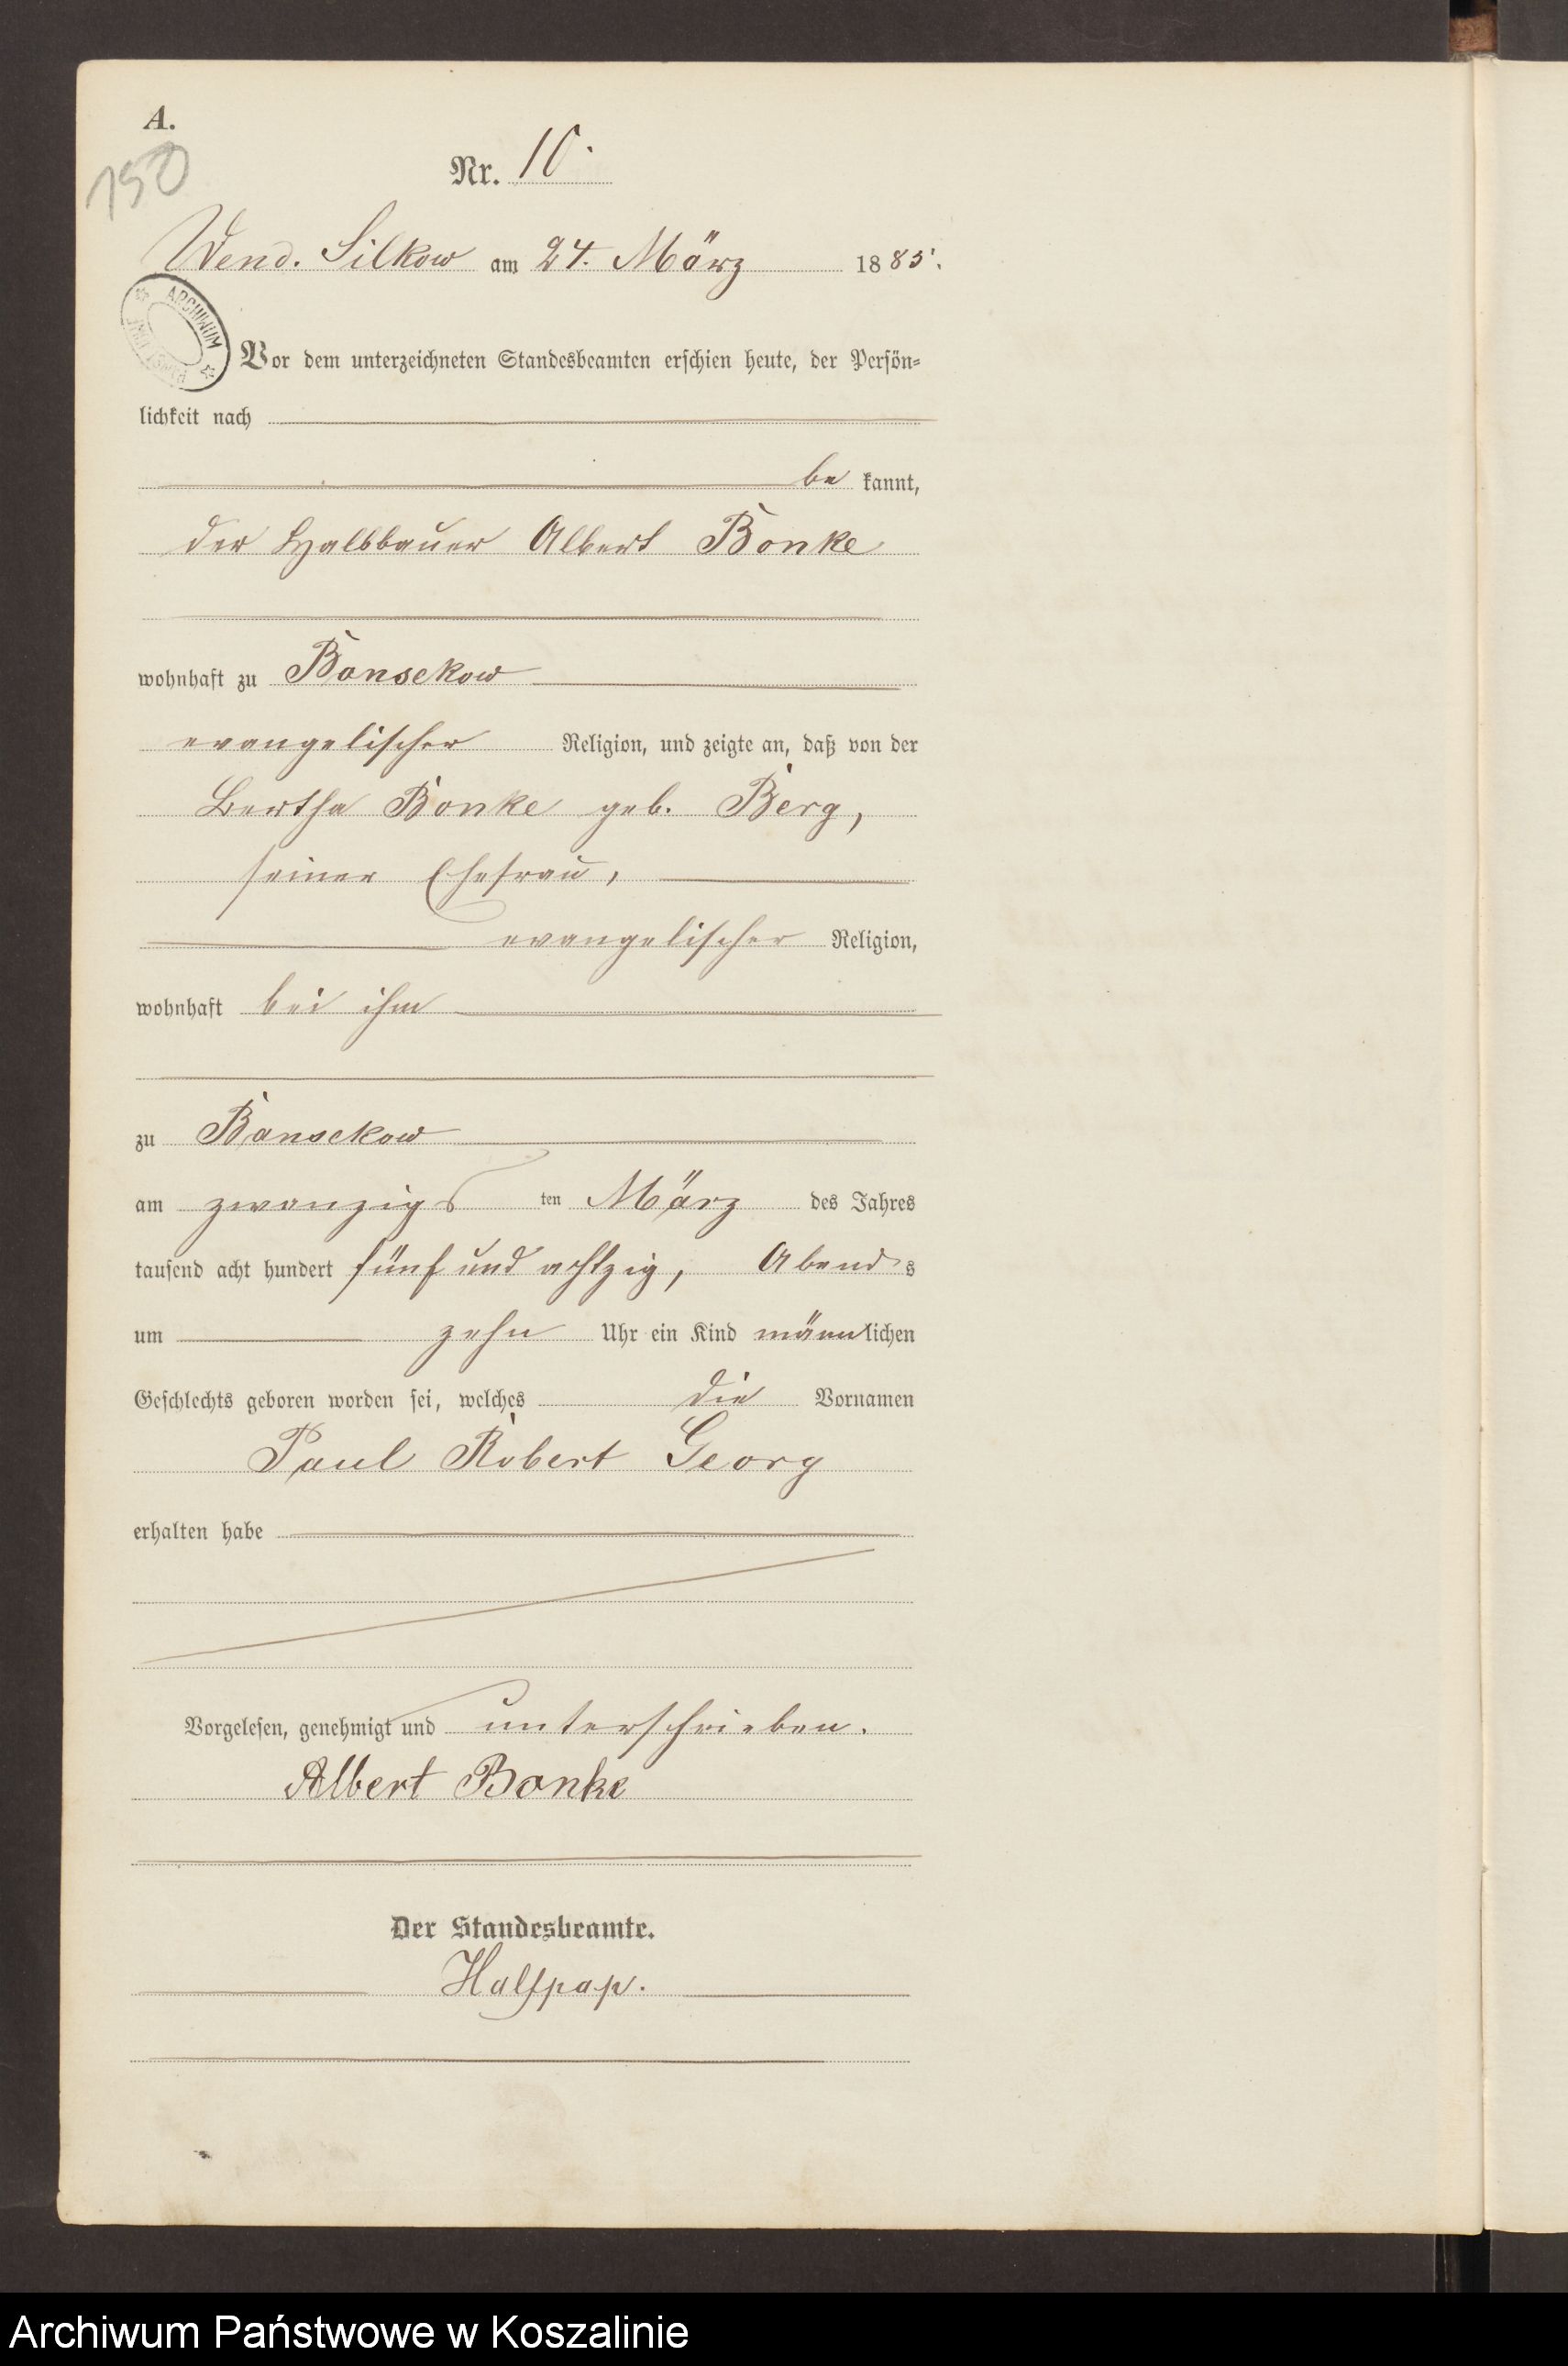 A.
150
Nr. 10.
Wend. Silkow am 24. März 1885.
ARCHIWUM
Vor dem unterzeichneten Standesbeamten erschien heute, der Persön-
lichkeit nach
be kannt,
der Halbbauer Albert Bonke
wohnhaft zu Bansekow
evangelischer Religion, und zeigte an, daß von der
Bertha Bonke geb. Berg,
seiner Ehefrau,
evangelischer Religion,
wohnhaft bei ihm
zu Bansekow
am zwanzigs ten März des Jahres
tausend acht hundert fünf und achtzig, Abends
um zehn Uhr ein Kind männlichen
Geschlechts geboren worden sei, welches die Vornamen
Paul Robert Georg
erhalten habe
Vorgelesen, genehmigt und unterschrieben.
Albert Bonke
Der Standesbeamte.
Halfpap.
Archiwum Państwowe w Koszalinie